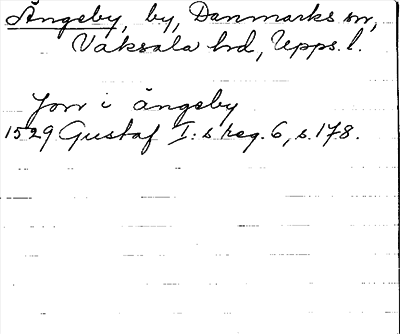 Ängeby, by, Danmarks sn,
Vaksala hd, Upps. l.
Jon i ängeby
1529 Gustaf I:s reg. 6, s. 178.